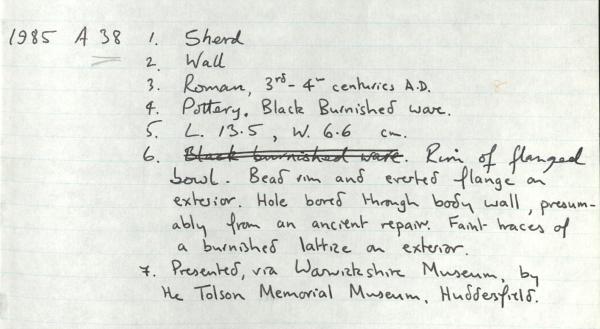 1985 A 38 1. Sherd
2. Wall
3. Roman, 3rd - 4th centuries A.D.
4. Pottery. Black Burnished ware.
5. L. 13.5, W. 6.6 cm.
6. Black burnished ware. Rim of flanged
bowl. Bead rim and everted flange on
exterior. Hole bored through body wall, presum-
ably from an ancient repair. Faint traces of
a burnished lattice on exterior.
7. Presented, via Warwickshire Museum, by
the Tolson Memorial Museum, Huddersfield.